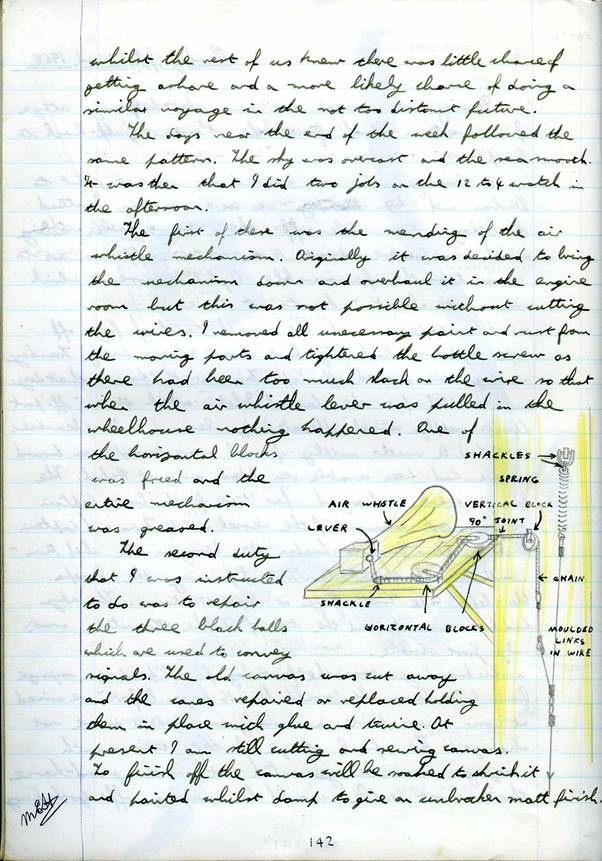 whilst the rest of us knew there was little chance of
getting ashore and a more likely chance of doing a
similar voyage in the not too distant future.
The days near the end of the week followed the
same pattern. The sky was overcast and the sea smooth.
It was then that I did two jobs on the 12 to 4 watch in
the afternoon.
The first of these was the mending of the air
whistle mechanism. Originally it was decided to bring
the mechanism down and overhaul it in the engine
room but this was not possible without cutting
the wires. I removed all unecessary paint and rust from
the moving parts and tightened the bottle screw as
there had been too much slack on the wire so that
when the air whistle lever was pulled in the
wheelhouse nothing happened. One of
the horizontal blocks
was freed and the
entire mechanism
was greased.
The second duty
that I was instructed
to do was to repair
the three black balls
which are used to convey
signals. The old canvas was cut away
and the canes repaired or replaced holding
them in place with glue and twine. At
present I am still cutting and sewing canvas.
To finish off the canvas will be soaked to shrink it
and painted whilst damp to give an unbroken matt finish.
SHACKLES
SPRING
AIR WHISTLE
VERTICAL BLOCK
LEVER
90° JOINT
CHAIN
SHACKLE
HORIZONTAL BLOCKS
MOULDED
LINKS
IN WIRE
142